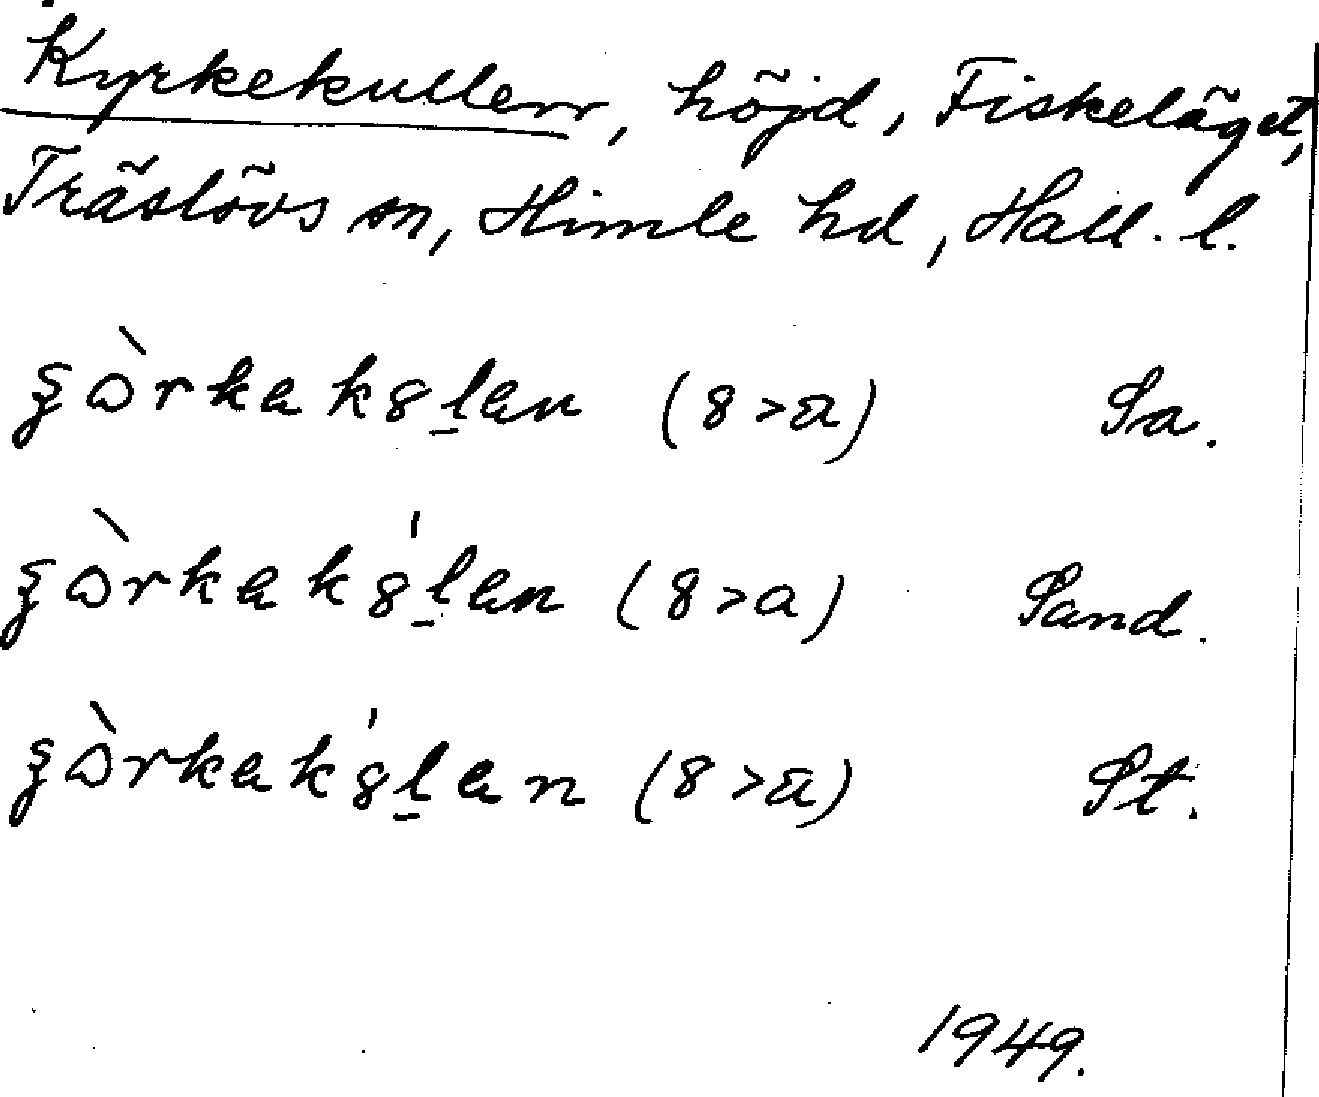 Kyrkekullen, höjd, Fiskeläget,
Träslövs sn, Himle hd, Hall. l.
(8>a) Sa.
(8>a) Sand.
(8>a) St.
1949.